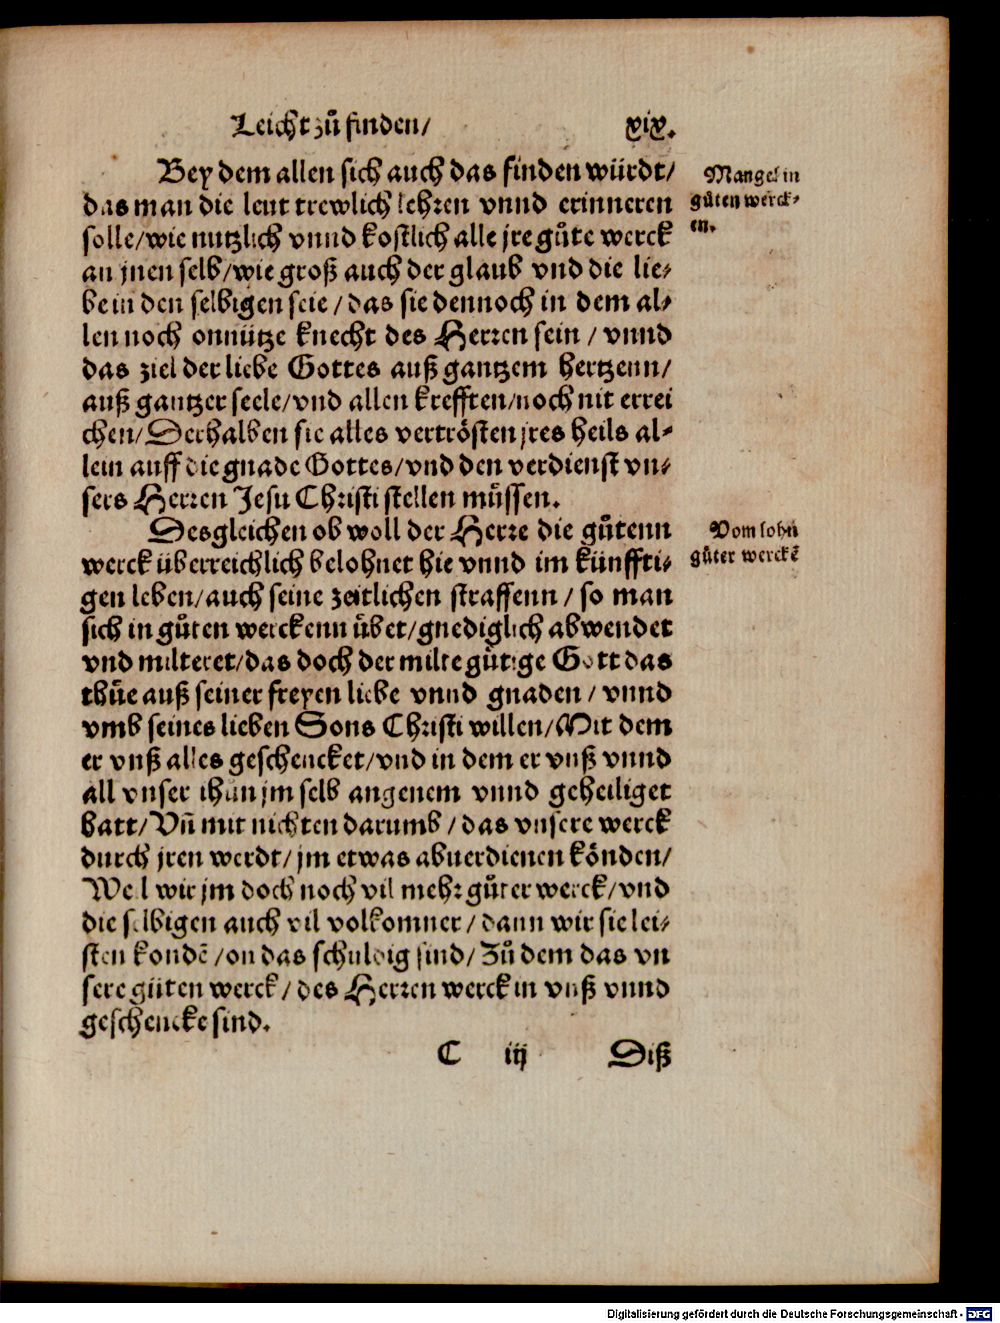 Leicht zů finden/ xix.
Bey dem allen sich auch das finden würdt/
das man die leut trewlich lehren vnnd erinneren
solle/wie nutzlich vnnd kostlich alle jre gůte werck
an jnen selb/wie groß auch der glaub vnd die lie⸗
be in den selbigen seie/das sie dennoch in dem al⸗
len noch onnütze knecht des Herren sein/vnnd
das ziel der liebe Gottes auß gantzem hertzenn/
auß gantzer seele/vnd allen krefften/noch nit errei
chen/Derhalben sie alles vertrösten jres heils al⸗
lein auff die gnade Gottes/vnd den verdienst vn⸗
sers Herren Jesu Christi stellen müssen.
Mangel in
gůten werck⸗
en.
Desgleichen ob woll der Herre die gůtenn
werck überreichlich belohnet hie vnnd im künffti⸗
gen leben/auch seine zeitlichen straffenn/so man
sich in gůten werckenn übet/gnediglich abwendet
vnd milteret/das doch der milte gůtige Gott das
thůe auß seiner freyen liebe vnnd gnaden/vnnd
vmb seines lieben Sons Christi willen/Mit dem
er vnß alles geschencket/vnd in dem er vnß vnnd
all vnser thůn jm selb angenem vnnd geheiliget
hatt/Vn̄ mit nichten darumb/das vnsere werck
durch jren werdt/jm etwas abuerdienen könden/
Weil wir jm doch noch vil mehr gůter werck/vnd
die selbigen auch vil volkomner/dann wir sie lei⸗
sten kondē/on das schuldig sind/Zů dem das vn
sere gůten werck/des Herren werck in vnß vnnd
geschencke sind.
Vom lohn
gůter werckē
C iij Diß
Digitalisierung gefördert durch die Deutsche Forschungsgemeinschaft - DFG